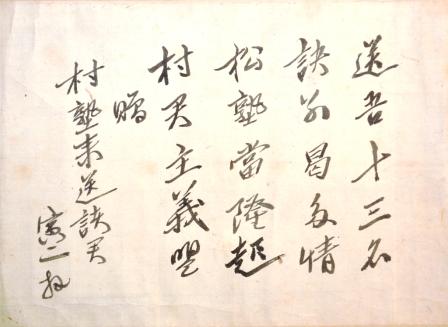 送吾十三名
訣別曷多情
松塾當隆起
村君主義盟
贈
村塾来送諸君
寅二拝